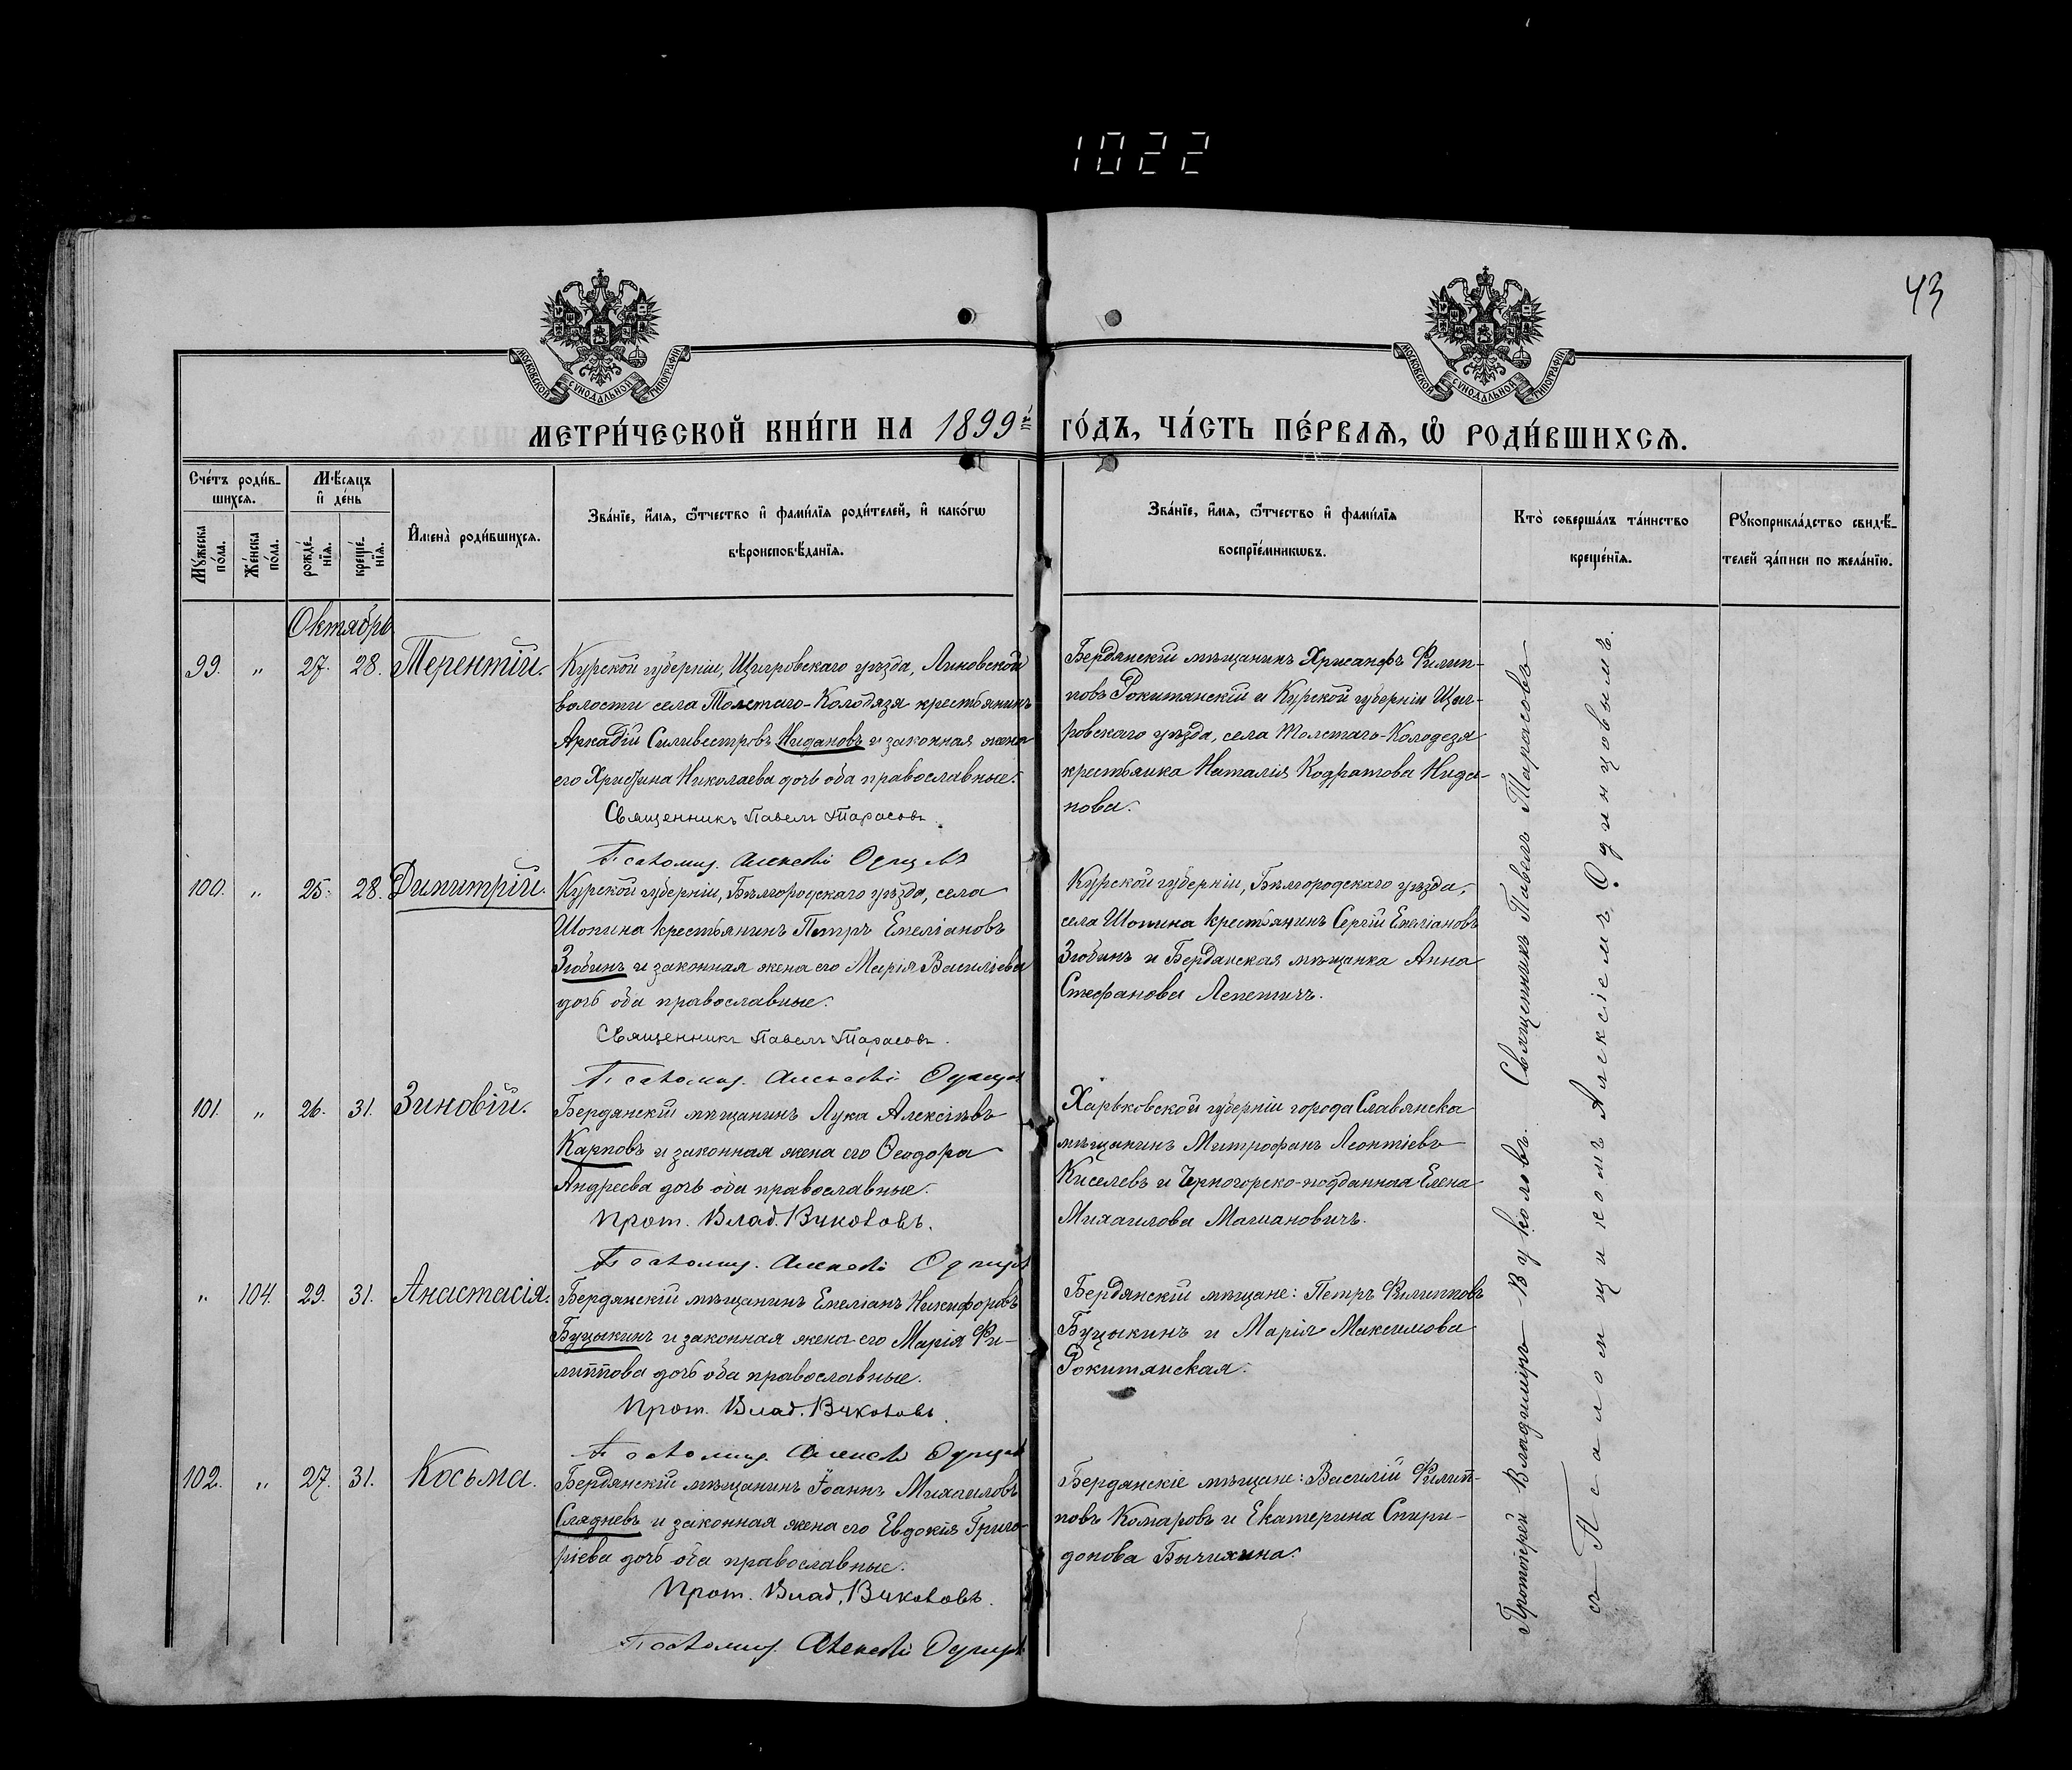 1022
43
МОСКОВСКОЙ СУНОДАЛЬНОЙ ТИПОГРАФІИ
МОСКОВСКОЙ СУНОДАЛЬНОЙ ТИПОГРАФІИ
МЕТРИ́ЧЕСКОЙ КНИ́ГИ НА 1899й ГО́ДЪ, ЧА́СТЬ ПЕ́РВАѦ, Ѡ҆ РОДИ́ВШИХСѦ.
Сче́тъ роди́в-
шихсѧ.
Мꙋ́жеска по́ла.
Же́нска по́ла.
Мѣ́сѧцъ
и҆ де́нь
рожде́-
нїѧ.
креще́-
нїѧ.
И҆мена̀ роди́вшихсѧ.
Зва́нїе, и҆́мѧ, ѻ҆́тчество и҆ фами́лїѧ роди́телей, и҆ како́гѡ
вѣроисповѣ́данїѧ.
Зва́нїе, и҆́мѧ, ѻ҆́тчество и҆ фами́лїѧ
воспрїе́мникѡвъ.
Кто̀ соверша́лъ та́инство
креще́нїѧ.
Рꙋкоприкла́дство свидѣ́-
телей за́писи по жела́нїю.
Октябрь
99. „ 27. 28. Терентій.
Курской губерніи, Щигровскаго уѣзда, Линовской
волости села Толстаго-Колодязя крестьянинъ
Аркадій Силивестровъ Нидановъ и законная жена
его Христина Николаева дочь оба православные.
Священникъ Павелъ Тарасовъ.
Псаломщ. Алексѣй
Бердянскій мѣщанинъ Хрисанфъ Филип-
повъ Рокитянскій и Курской губерніи Щиг-
ровскаго уѣзда, села Толстаго-Колодезя
крестьянка Наталія Кодратова Нида-
нова.
100. „ 25. 28. Димитрій.
Курской губерніи, Бѣлгородскаго уѣзда, села
Шопина крестьянинъ Петръ Емеліановъ
Злобинъ и законная жена его Марія Васильева
дочь оба православные.
Священникъ Павелъ Тарасовъ.
Псаломщ. Алексѣй
Курской губерніи, Бѣлгородскаго уѣзда,
села Шопина крестьянинъ Сергій Емеліановъ
Злобинъ и Бердянская мѣщанка Анна
Стефанова Лепетичъ.
101. „ 26. 31. Зиновій.
Бердянскій мѣщанинъ Лука Алексѣевъ
Карповъ и законная жена его Ѳеодора
Андреева дочь оба православные.
Прот. Влад. Вуколовъ.
Псаломщ. Алексѣй
Харьковской губерніи города Славянска
мѣщанинъ Митрофанъ Леонтіевъ
Киселевъ и Черногорско-подданная Елена
Михаилова Магиановичъ.
„ 104. 29. 31. Анастасія.
Бердянскій мѣщанинъ Емеліанъ Никифоровъ
Буцыкинъ и законная жена его Марія Фи-
липпова дочь оба православные.
Прот. Влад. Вуколовъ.
Псаломщ. Алексѣй
Бердянскій мѣщане: Петръ Филипповъ
Буцыкинъ и Марія Максимова
Рокитянская.
102. „ 27. 31. Косьма.
Бердянскій мѣщанинъ Іоаннъ Михаиловъ
Слядневъ и законная жена его Евдокія Григо-
ріева дочь оба православные.
Прот. Влад. Вуколовъ.
Псаломщ. Алексѣй
Бердянскіе мѣщане: Василій Филип-
повъ Комаровъ и Екатерина Спири-
донова Бычихина.
Протоіерей Владиміръ Вуколовъ. Священникъ Павелъ Тарасовъ
съ Псаломщикомъ Алексіемъ Одинцовымъ.